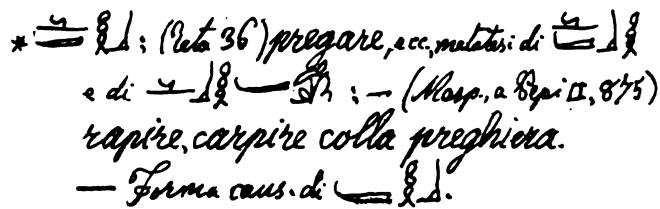 * : (Teta 36) pregare, ecc, metatesi di
e di : — (Masp., a Pepi II, 875)
rapire, carpire colla preghiera.
— Forma caus. di .